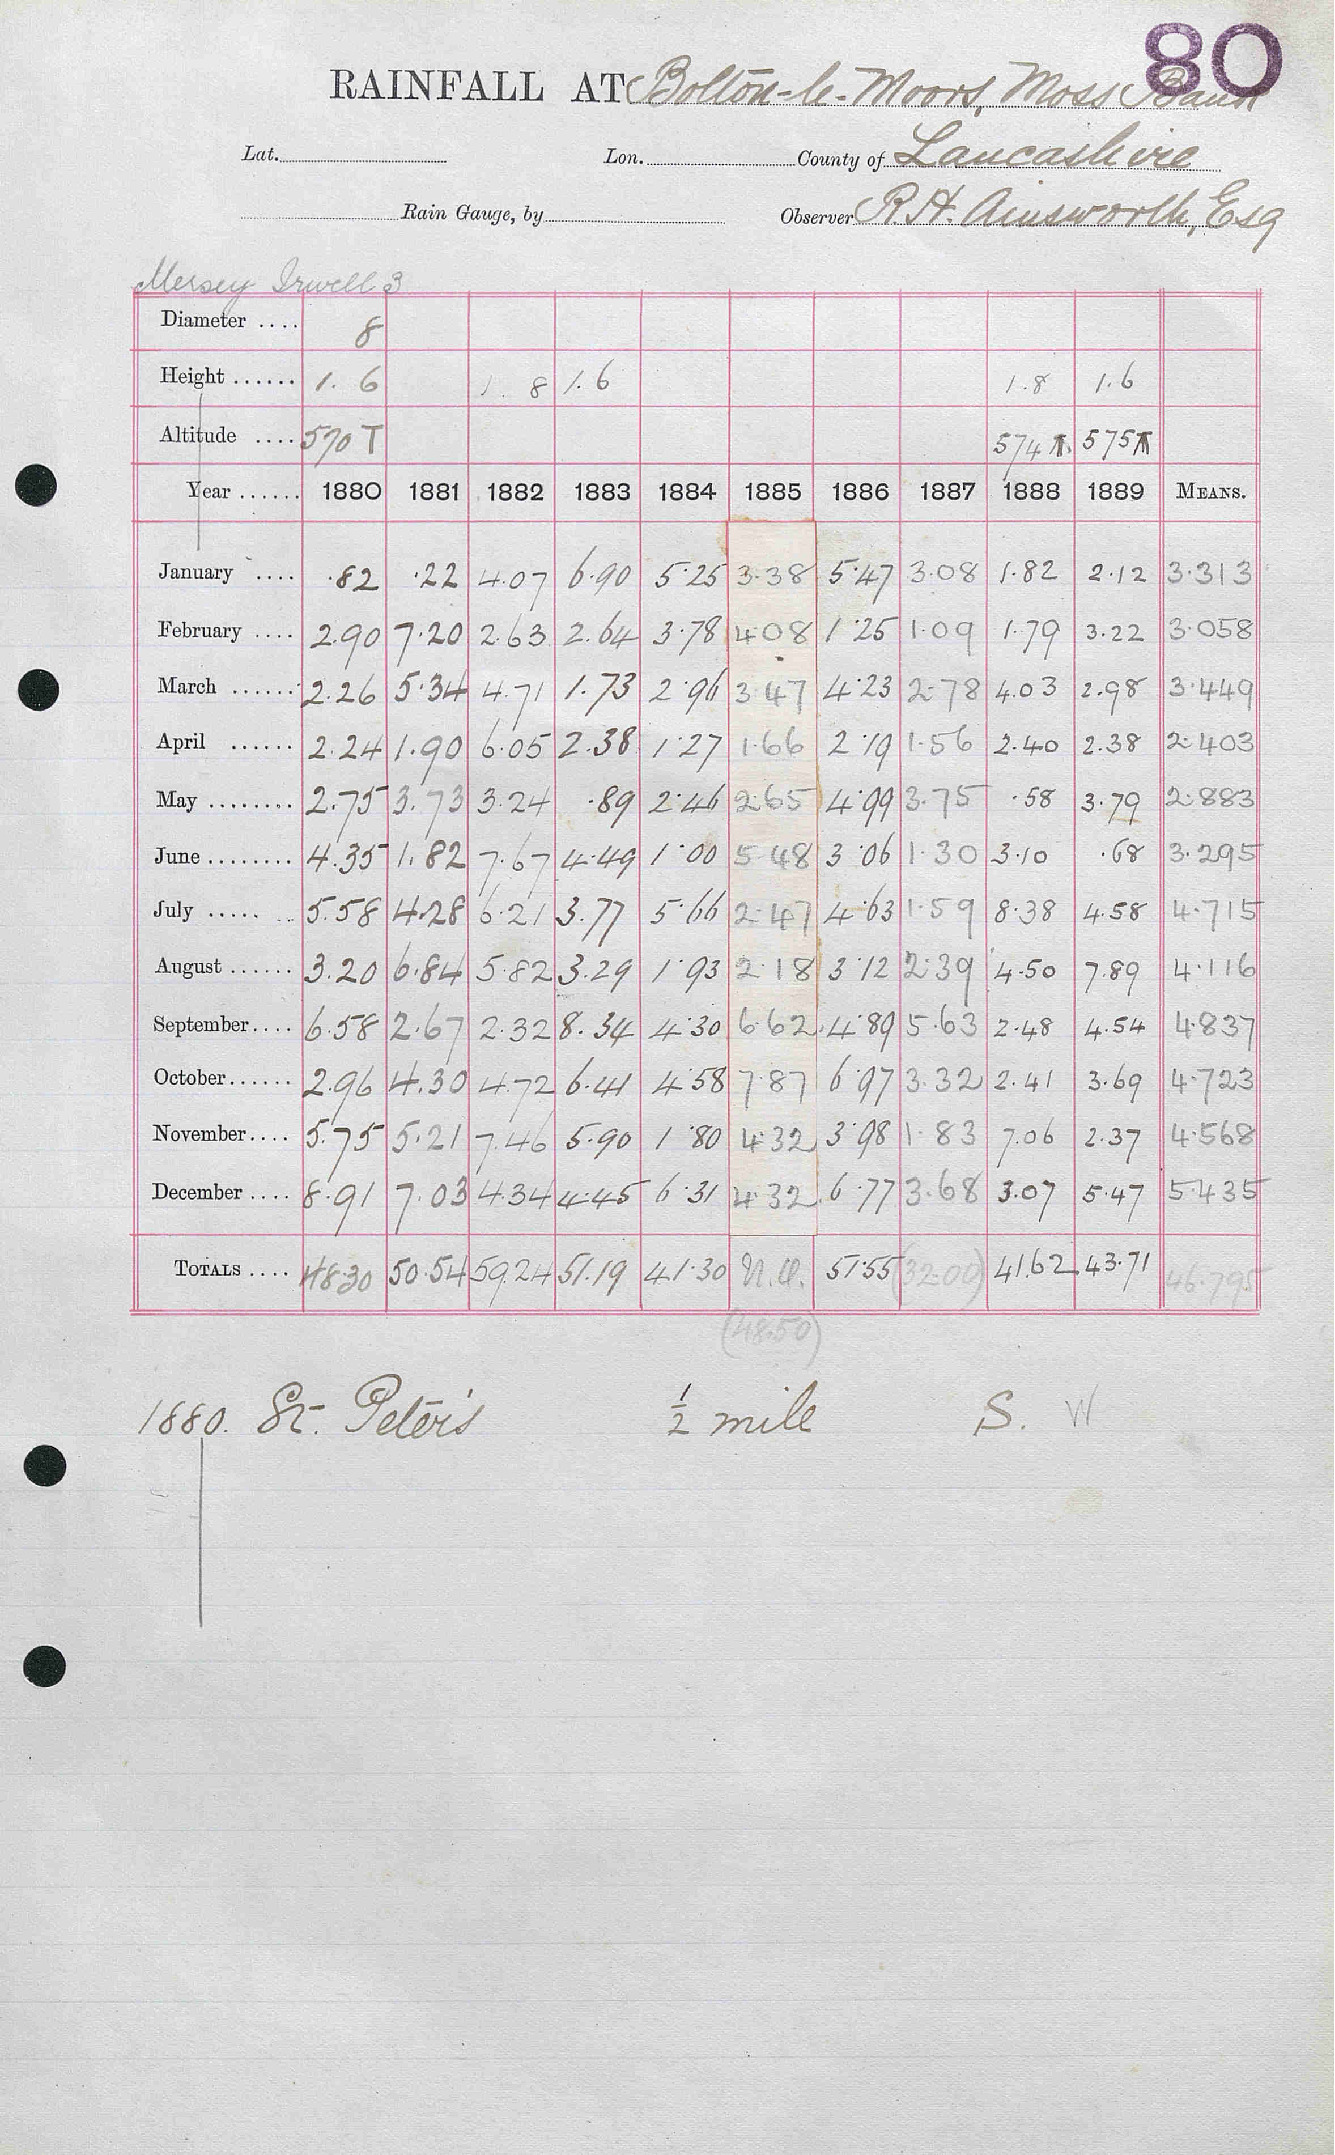 80
RAINFALL AT Bolton-le-Moors, Moss Bank
Lat. Lon. County of Lancashire
Rain Gauge, by Observer R. H. Ainsworth, Esq
Mersey Irwell 3
Diameter .... 8
Height ...... 1. 6 1. 8 1.6 1.8 1.6
Altitude .... 570 T 574 T. 575 T
Year ...... 1880 1881 1882 1883 1884 1885 1886 1887 1888 1889 MEANS.
January .... .82 .22 4.07 6.90 5.25 3.38 5.47 3.08 1.82 2.12 3.313
February .... 2.90 7.20 2.63 2.64 3.78 4.08 1.25 1.09 1.79 3.22 3.058
March ...... 2.26 5.34 4.71 1.73 2.96 3.47 4.23 2.78 4.03 2.98 3.449
April ...... 2.24 1.90 6.05 2.38 1.27 1.66 2.19 1.56 2.40 2.38 2.403
May ........ 2.75 3.73 3.24 .89 2.46 2.65 4.99 3.75 .58 3.79 2.883
June ........ 4.35 1.82 7.67 4.49 1.00 5.48 3.06 1.30 3.10 .68 3.295
July ..... .. 5.58 4.28 6.21 3.77 5.66 2.47 4.63 1.59 8.38 4.58 4.715
August ...... 3.20 6.84 5.82 3.29 1.93 2.18 3.12 2.39 4.50 7.89 4.116
September.... 6.58 2.67 2.32 8.34 4.30 6.62 4.89 5.63 2.48 4.54 4.837
October...... 2.96 4.30 4.72 6.41 4.58 7.87 6.97 3.32 2.41 3.69 4.723
November.... 5.75 5.21 7.46 5.90 1.80 4.32 3.98 1.83 7.06 2.37 4.568
December .... 8.91 7.03 4.34 4.45 6.31 4.32 6.77 3.68 3.07 5.47 5.435
TOTALS .... 48.30 50.54 59.24 51.19 41.30 51.55 (32.00) 41.62 43.71 46.795
(48.50)
1880. St. Peter's ½ mile S. W